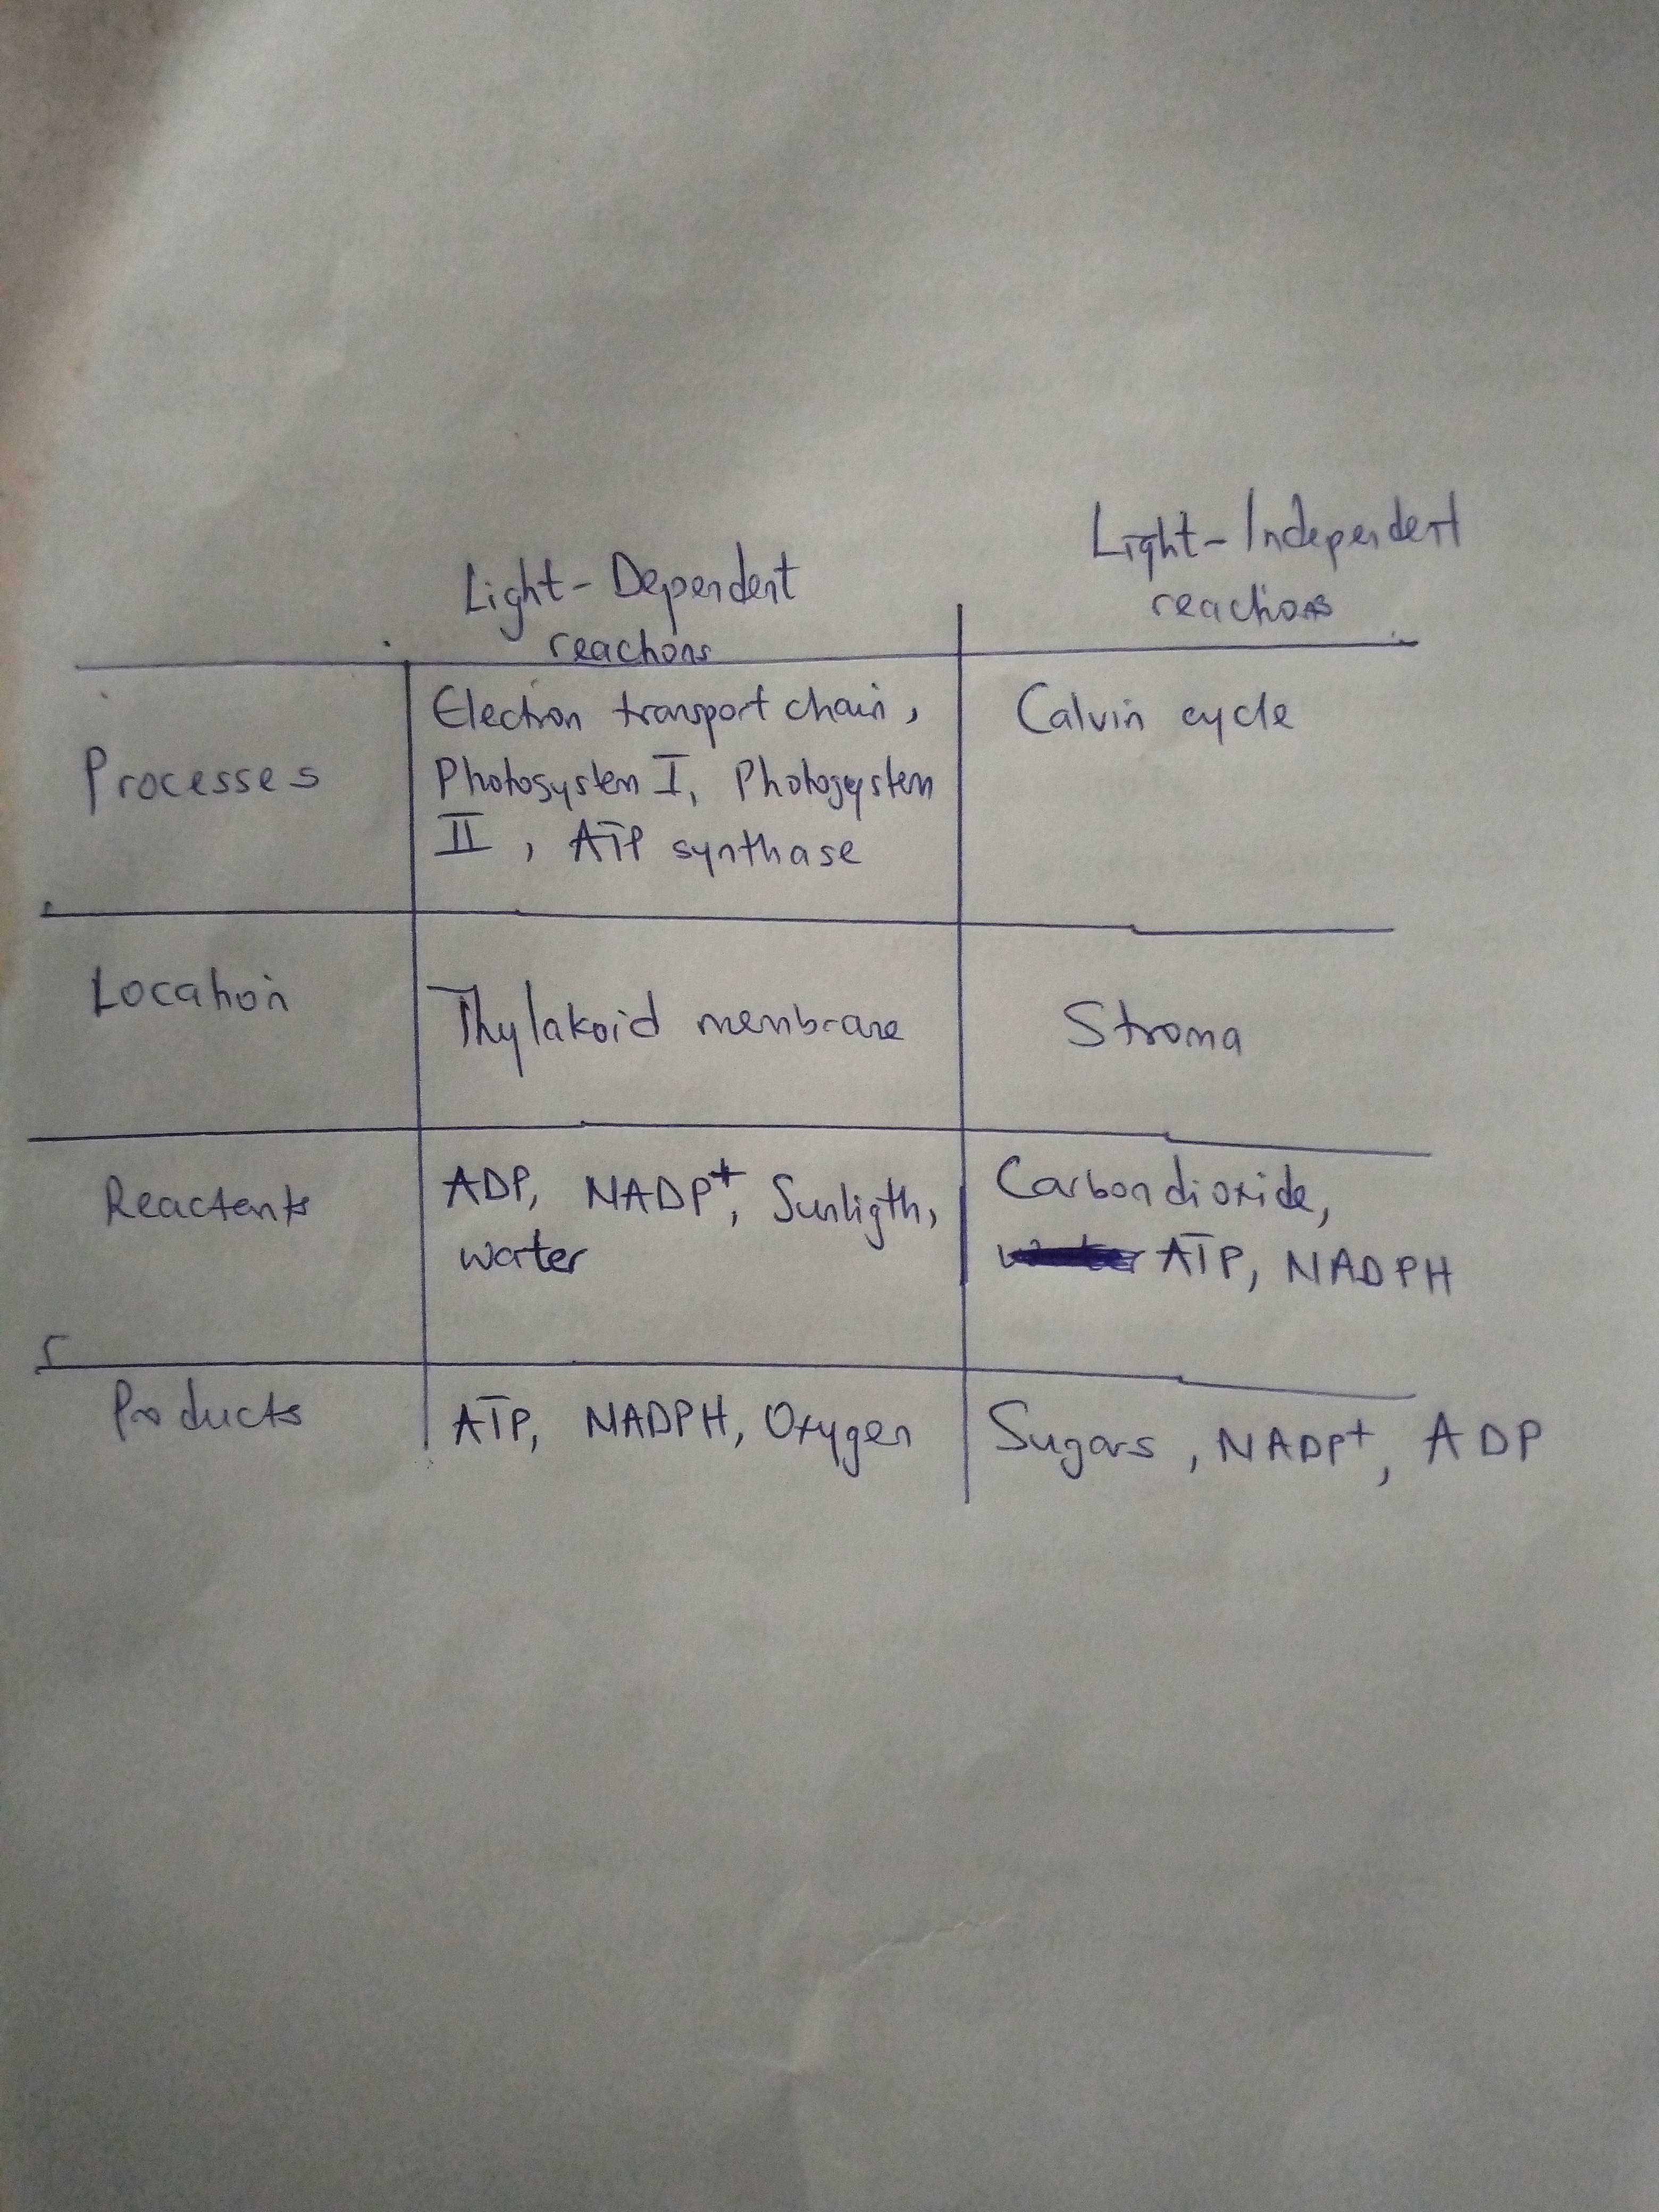 Light-Dependent
reactions
Light-Independent
reactions
Processes
Electron transport chain,
Photosystem I, Photosystem
II, ATP synthase
Calvin cycle
Location
Thylakoid membrane
Stroma
Reactants
ADP, NADP+, Sunligth,
water
Carbondioxide,
ATP, NADPH
Products
ATP, NADPH, Oxygen
Sugars, NADP+, ADP